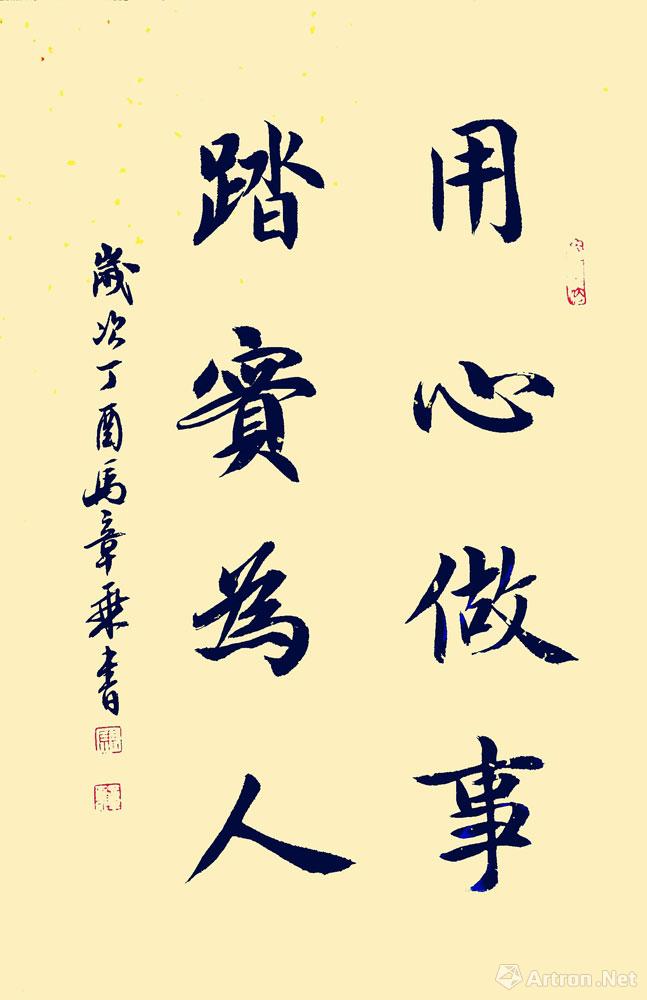 用心做事
踏實為人
歲次丁酉馬章乘書
Artron.Net